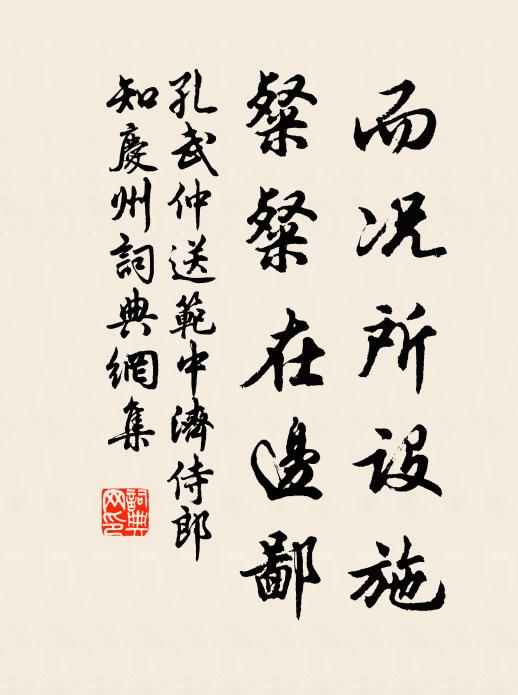 而况所设施
粲粲在邊鄙
孔武仲送範中濟侍郎
知慶州詞典網集
詞典
网印